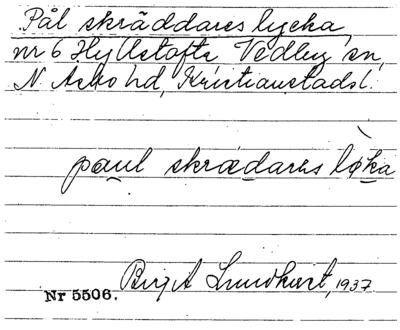 Pål skräddares lycka,
nr 6 Hyllstofta Vedby sn,
N. Åsbo hd, Kristianstads l.
paul skrædarəs løka
Birgit Lundkvist, 1937
Nr 5506.